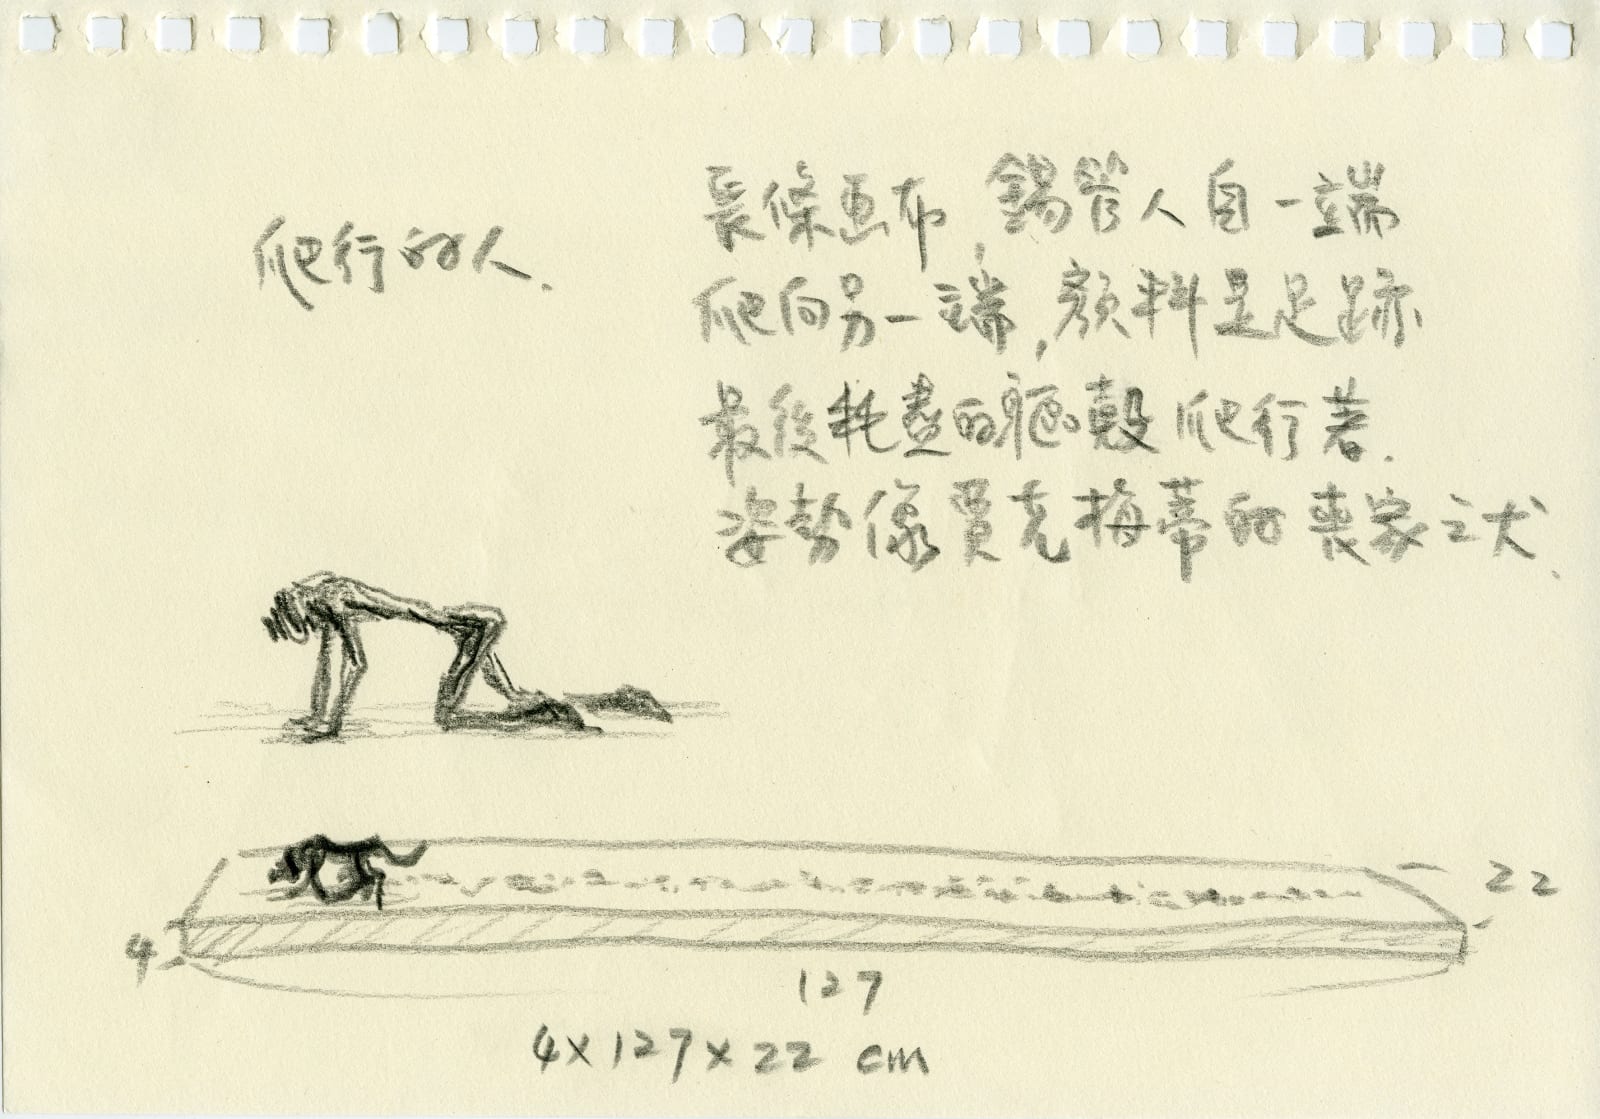 爬行的人.
長條画布,錫管人自一端
爬向另一端,顏料是足跡
最後耗盡的軀殼爬行著.
姿勢像賈克梅蒂的喪家之犬.
22
4
127
4x127x22 cm